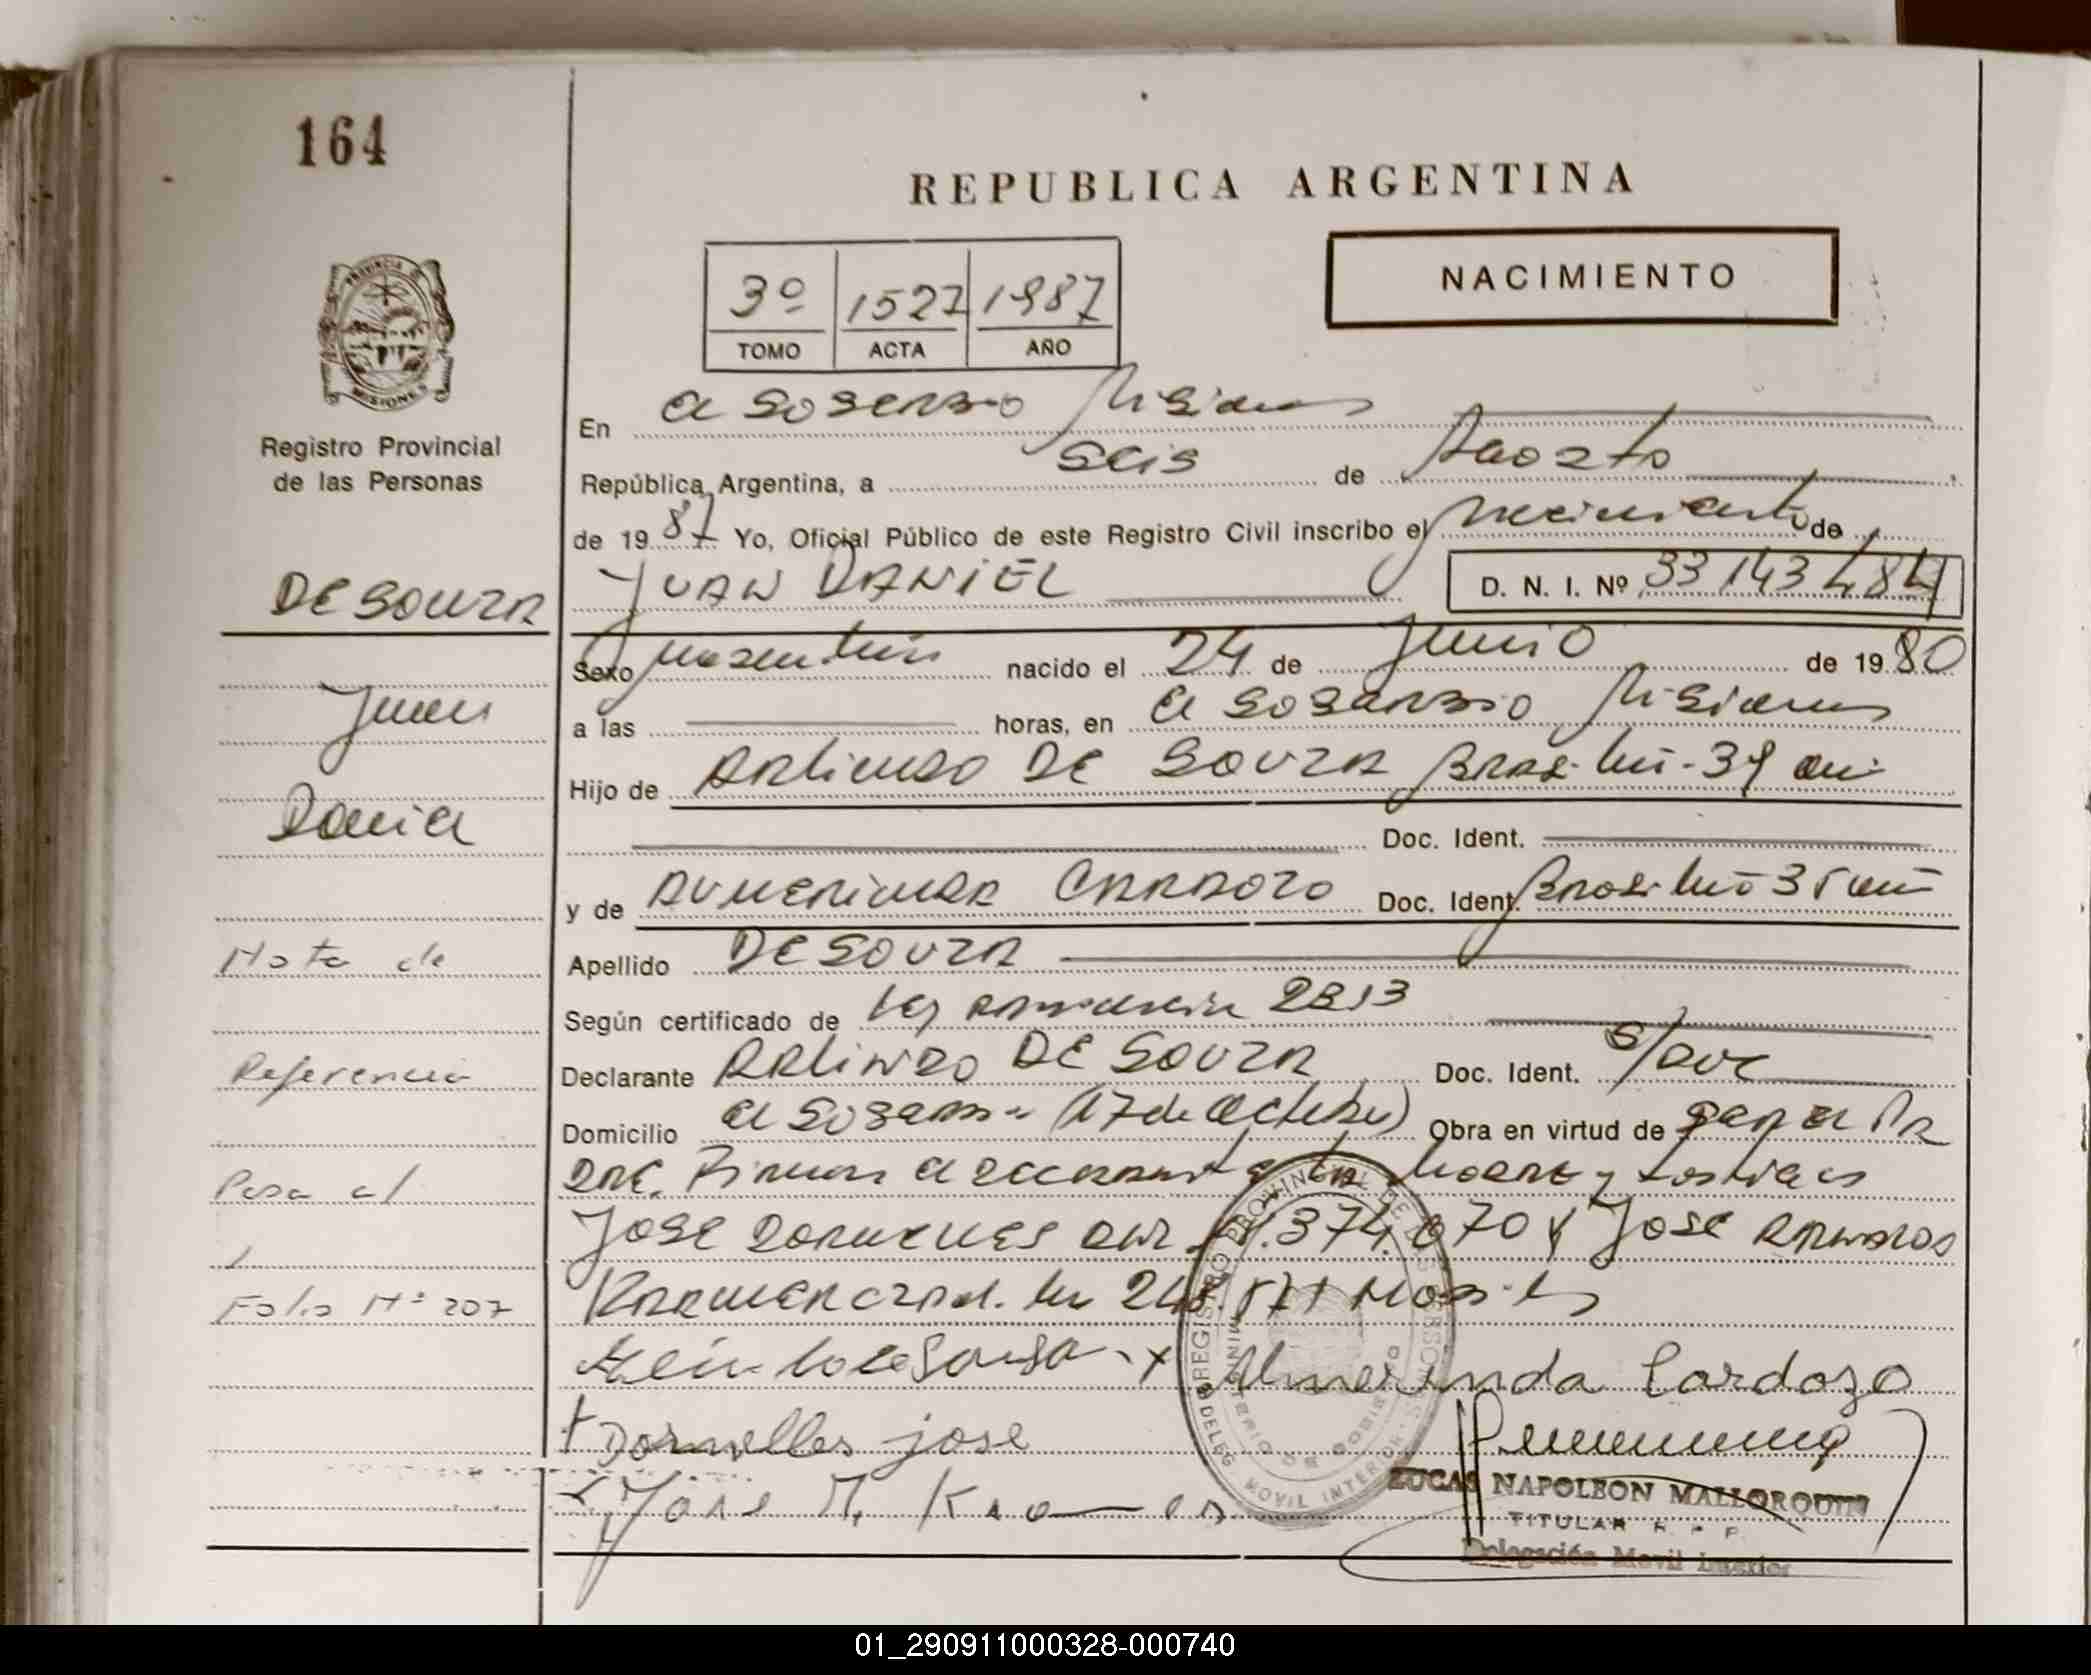 164
REPUBLICA ARGENTINA
NACIMIENTO
3º 1527 1987
TOMO ACTA AÑO
PROVINCIA DE MISIONES
Registro Provincial
de las Personas
En El Soberbio Misiones
República Argentina, a seis de Agosto
de 1987 Yo, Oficial Público de este Registro Civil inscribo el nacimiento de
JUAN DANIEL D. N. I. Nº 33143484
DE SOUZA
Sexo masculino nacido el 24 de Junio de 1980
Juan
a las horas, en El Soberbio Misiones
Hijo de ARLINDO DE SOUZA
Daniel
Doc. Ident.
y de CARDOZO Doc. Ident.
Nota de
Apellido DE SOUZA
Según certificado de Ley
Referencia
Declarante ARLINDO DE SOUZA Doc. Ident. S/Doc
Domicilio El Soberbio (17 de Octubre) Obra en virtud de
Pasa al
Firman el declarante la madre y testigos
JOSE 374.070 y JOSE
Folio Nº 207
de Sousa x Almerinda Cardozo
+ Dornelles jose
x Jose
REGISTRO PROVINCIAL DE LAS PERSONAS
MINISTERIO DE GOBIERNO
DELEG. MOVIL INTERIOR
LUCAS NAPOLEON MALLORQUIN
TITULAR R. P. P.
Delegación Movil Interior
01_290911000328-000740